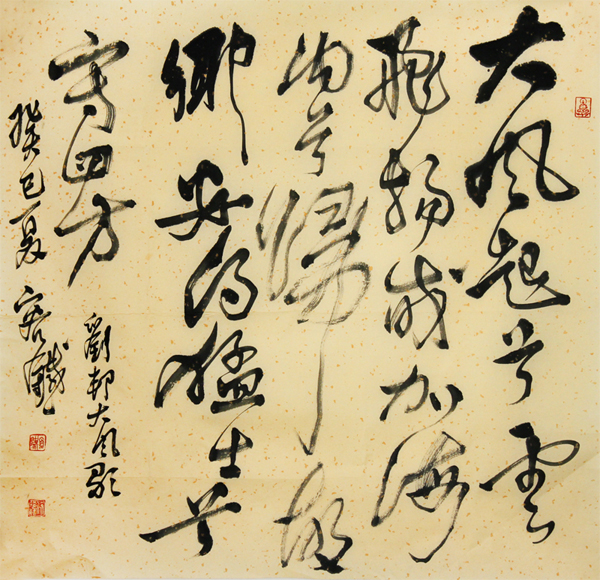 大風起兮雲
飛揚威加海
内兮歸故
鄉安得猛士兮
守四方
劉邦大風歌
癸巳夏